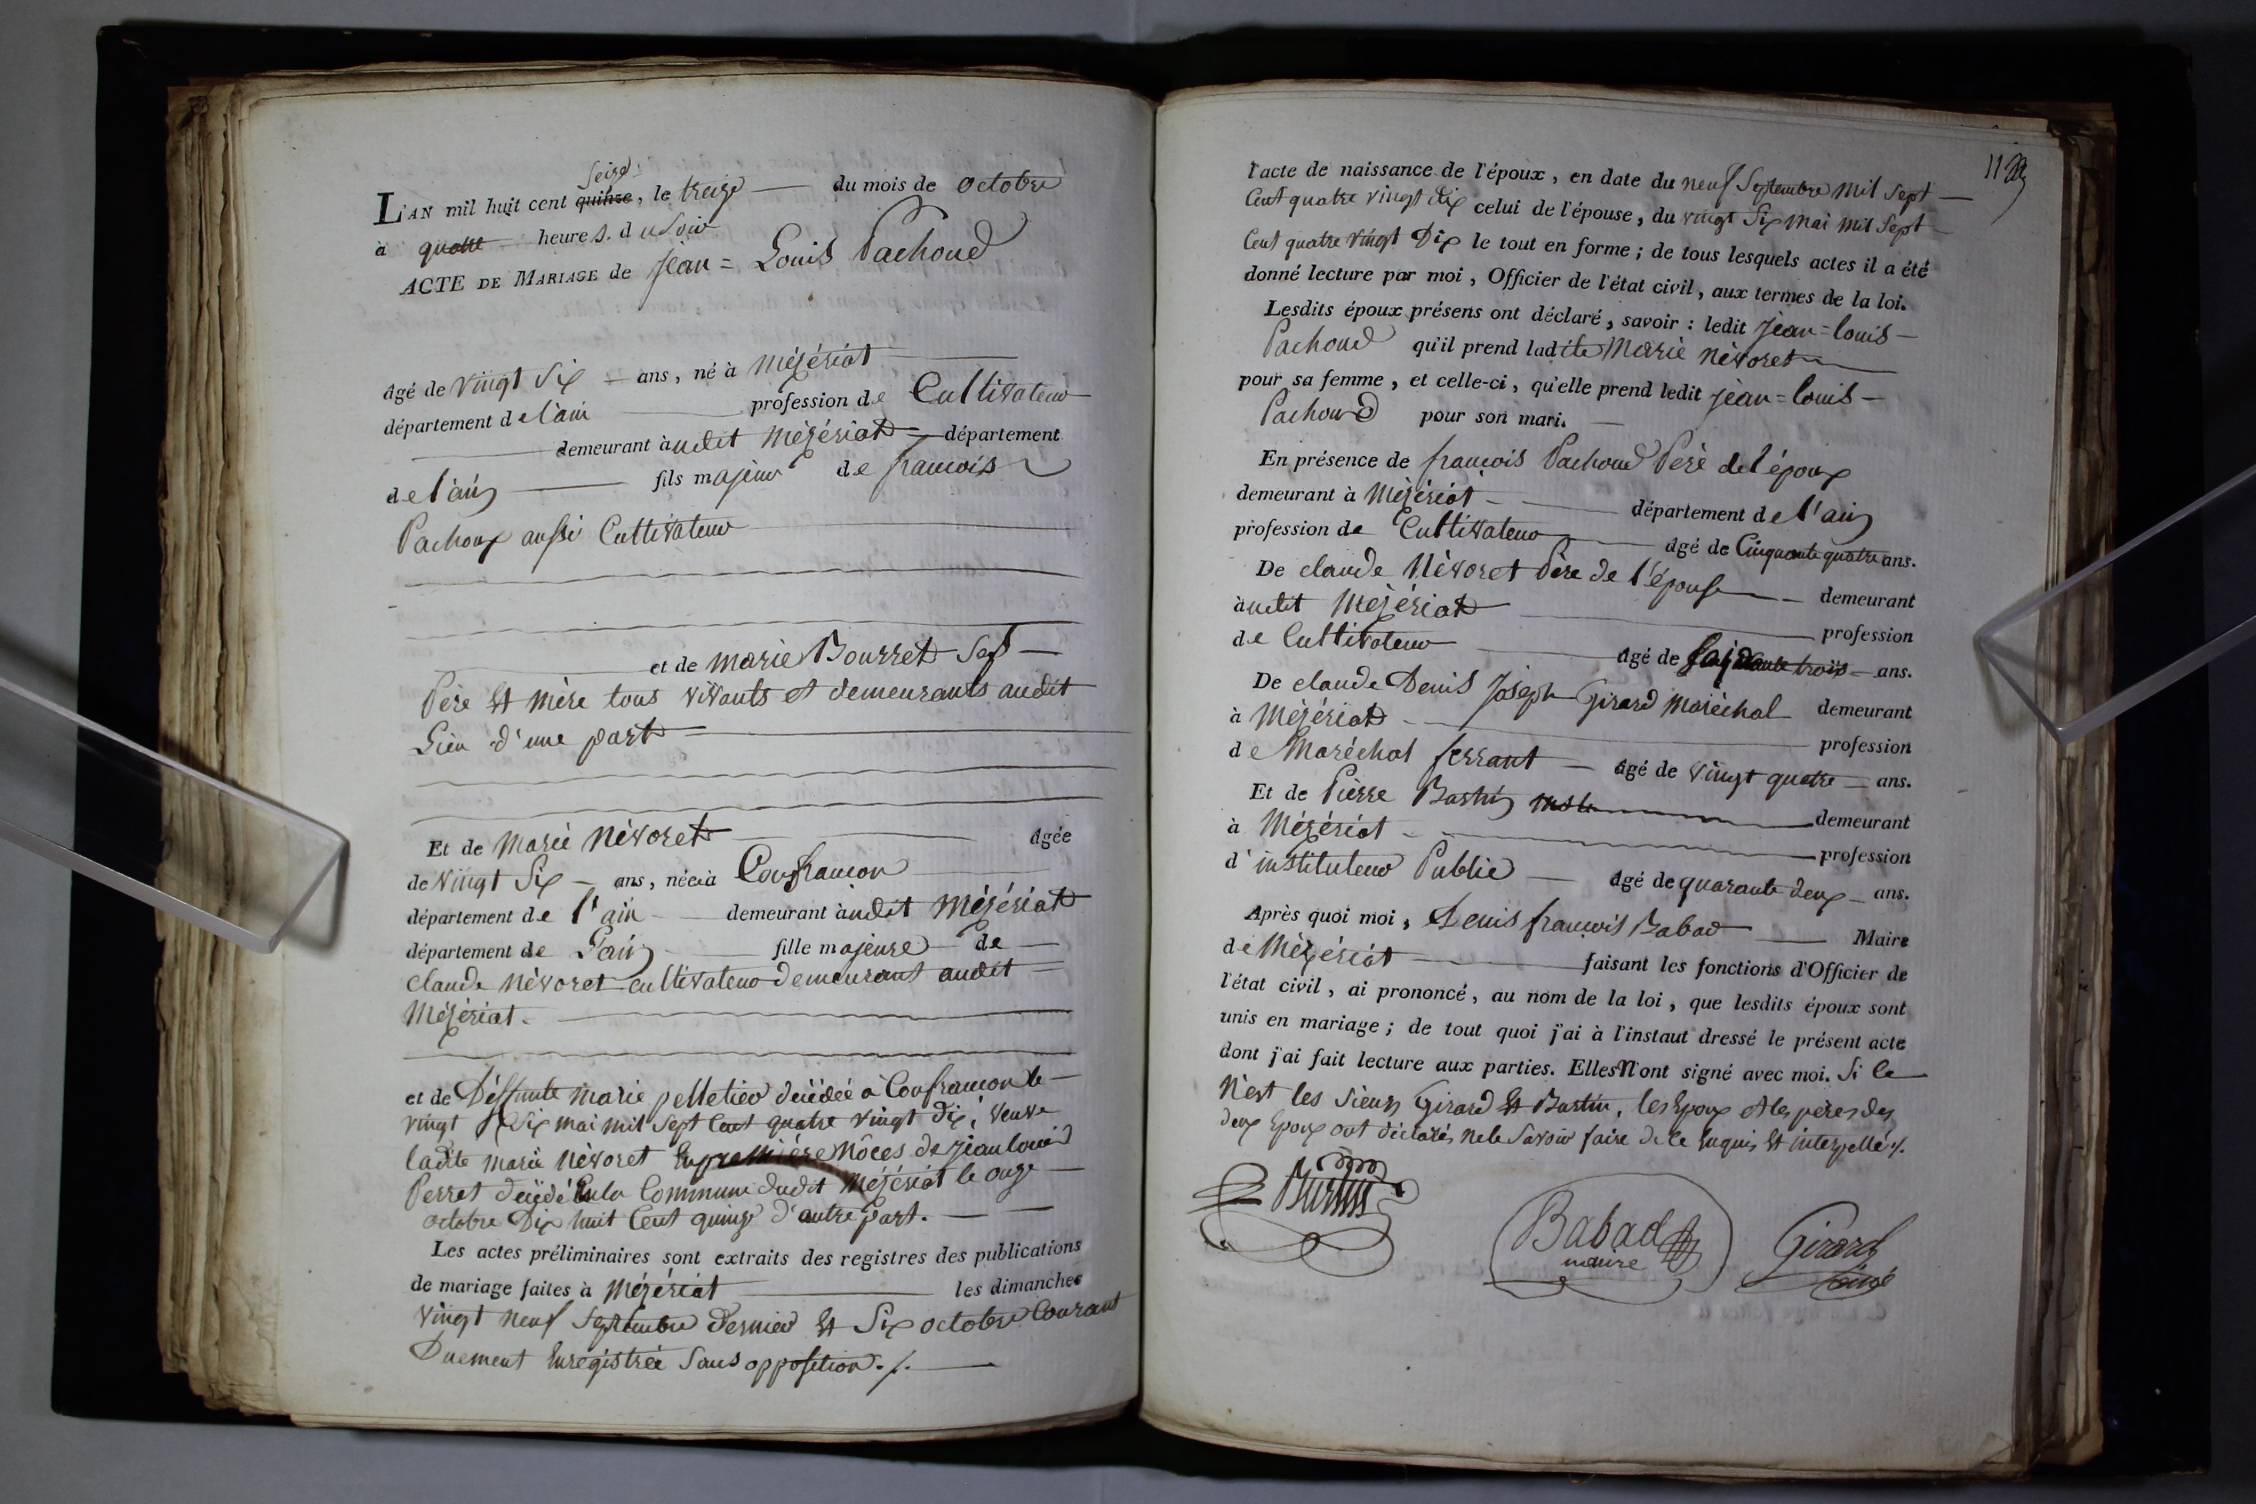 seize
L'AN mil huit cent quinze, le treize du mois de octobre
à quatre heures. du soir
ACTE DE MARIAGE de jean = Louis Pachoud
âgé de vingt six ans, né à Mézériat
département de l'ain profession de Cultivateur
demeurant àudit Mézériat département
de l'ain fils majeur de francois
Pachoux aussi Cultivateur
et de marie Bourret ses
Père et mère tous vivants et demeurants audit
Lieu d'une part
Et de Marie Nèvoret âgée
de vingt six ans, née à Confrancon
département de l'ain demeurant àudit Mézériat
département de L'ain fille majeure de
claude Nèvoret cultivateur demeurant audit
Mézériat.
et de Deffunte marie pelletier décédée à Confrancon le
vingt six mai mil sept cent quatre vingt dix, veuve
ladite marie Nèvoret En première Nôces de jean louis
Perret décédé en la Commune dudit Mézériat le onze
octobre Dix huit Cent quinze d'autre part.
Les actes préliminaires sont extraits des registres des publications
de mariage faites à Mézériat les dimanches
vingt neuf septembre dernier et six octobre Courant
Duement Enregistrée sans opposition ./.
l'acte de naissance de l'époux, en date du neuf septembre mil sept
Cent quatre vingt dix celui de l'épouse, du vingt six mai mil sept
Cent quatre vingt Dix le tout en forme; de tous lesquels actes il a été
donné lecture par moi, Officier de l'état civil, aux termes de la loi.
Lesdits époux présens ont déclaré, savoir : ledit jean = louis
Pachoud qu'il prend ladite Marie Nèvoret
pour sa femme, et celle-ci, qu'elle prend ledit jean = louis
Pachoud pour son mari.
En présence de francois Pachoud Père de l'époux
demeurant à Mézériat département de l'ain
profession de Cultivateur âgé de Cinquante quatre ans.
De claude Nèvoret Père de l'épouse demeurant
àudit Mézériat profession
de Cultivateur âgé de soixante trois ans.
De claude Denis Joseph Girard Maréchal demeurant
à Mézériat profession
de Maréchal ferrant âgé de vingt quatre ans.
Et de Pierre Bastin demeurant
à Mézériat profession
d'instituteur Public âgé de quarante deux ans.
Après quoi moi, Denis francois Babad Maire
de Mézériat faisant les fonctions d'Officier de
l'état civil, ai prononcé, au nom de la loi, que lesdits époux sont
unis en mariage; de tout quoi j'ai à l'instant dressé le présent acte
dont j'ai fait lecture aux parties. Elles N'ont signé avec moi. Si ce
N'est les sieurs Girard et Bastin, les Epoux et les pères des
deux Epoux ont déclarés ne le savoir faire de ce Enquis et interpellé ./.
Babad
maire
Girard